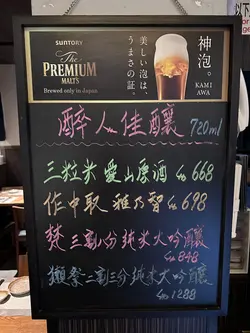 SUNTORY
The
PREMIUM
MALT'S
Brewed only in Japan
美しい泡は、
うまさの証。
神泡。
KAMI
AWA
醉人佳釀 720ml
三粒米 愛山原酒 668
作 中取 雅乃智 698
梵 三割分 純米大吟釀
848
獺祭 二割三分 純米大吟釀
1288
以下